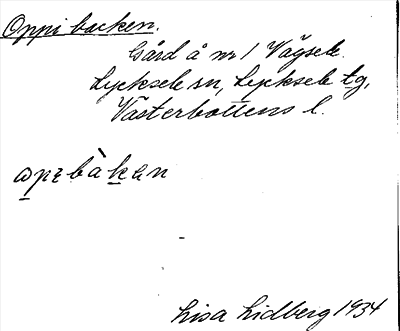 Oppi backen.
Gård å nr 1 Vägsele.
Lycksele sn, Lycksele tg,
Västerbottens l.
Lisa Lidberg 1934